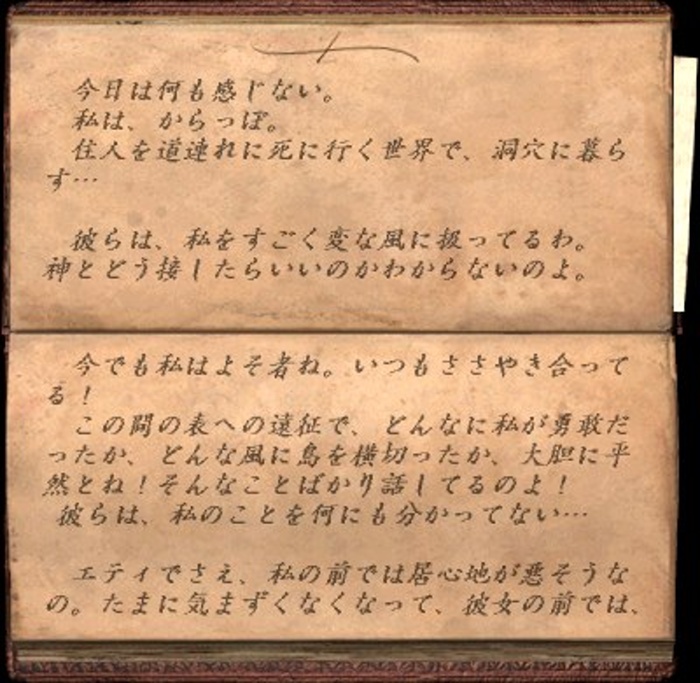 今日は何も感じない。
私は、からっぽ。
住人を道連れに死に行く世界で、洞穴に暮ら
す…
彼らは、私をすごく変な風に扱ってるわ。
神とどう接したらいいのかわからないのよ。
今でも私はよそ者ね。いつもささやき合って
る！
この間の表への遠征で、どんなに私が勇敢だ
ったか、どんな風に島を横切ったか、大胆に平
然とね！そんなことばかり話してるのよ！
彼らは、私のことを何にも分かってない…
エティでさえ、私の前では居心地が悪そうな
の。たまに気まずくなくなって、彼女の前では、